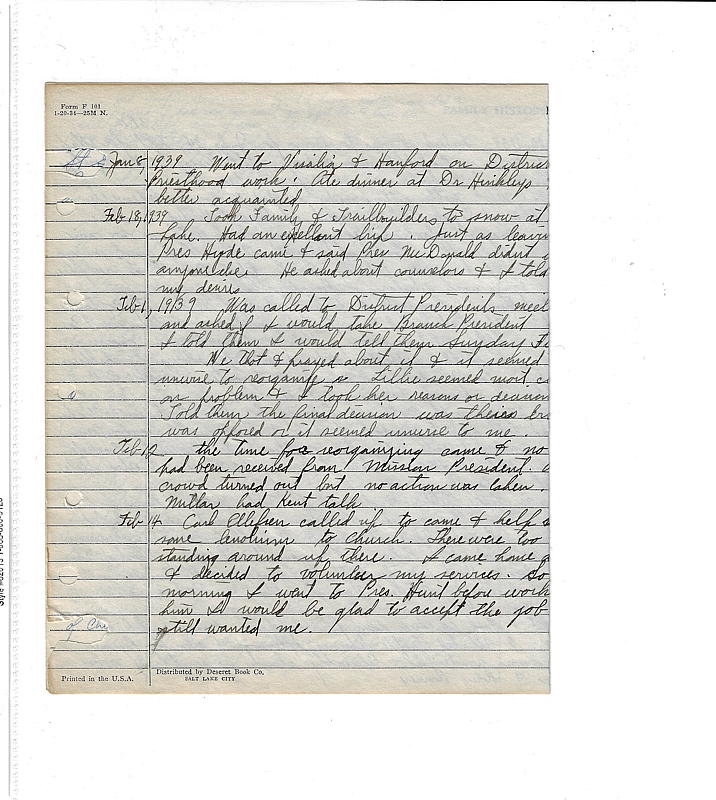 Form F 101
1-20-34—25M N.
Jan 8, 1939 Went to Visalia & Hanford on District
Priesthood work. Ate dinner at Dr Hinkleys
better acquainted
Feb 18, 1939 Took Family & Trailbuilders to snow at
Lake. Had an excellent trip. Just as leavin
Pres Hyde came & said Pres McDonald didnt
anyone else. He asked about counselors & I told
my desires
Feb 1, 1939 Was called to District Presidents meet
and asked if I would take Branch President
I told them I would tell them Sunday
We thot & prayed about it & it seemed
unwise to reorganize so Lillie seemed most
on problem & I took her reasons or decision
Told them the final decision was theirs
was opposed or it seemed unwise to me.
Feb 12 the time for reorganizing came & no
had been received from Mission President.
crowd turned out but no action was taken.
Millar had Kent talk
Feb 14 Carl Ellefsen called up to come & help
some lenolium to church. There were too
standing around up there. I came home
& decided to volunteer my services. So
morning I went to Pres. Hunt before work
him I would be glad to accept the job
still wanted me.
Printed in the U.S.A.
Distributed by Deseret Book Co.
SALT LAKE CITY